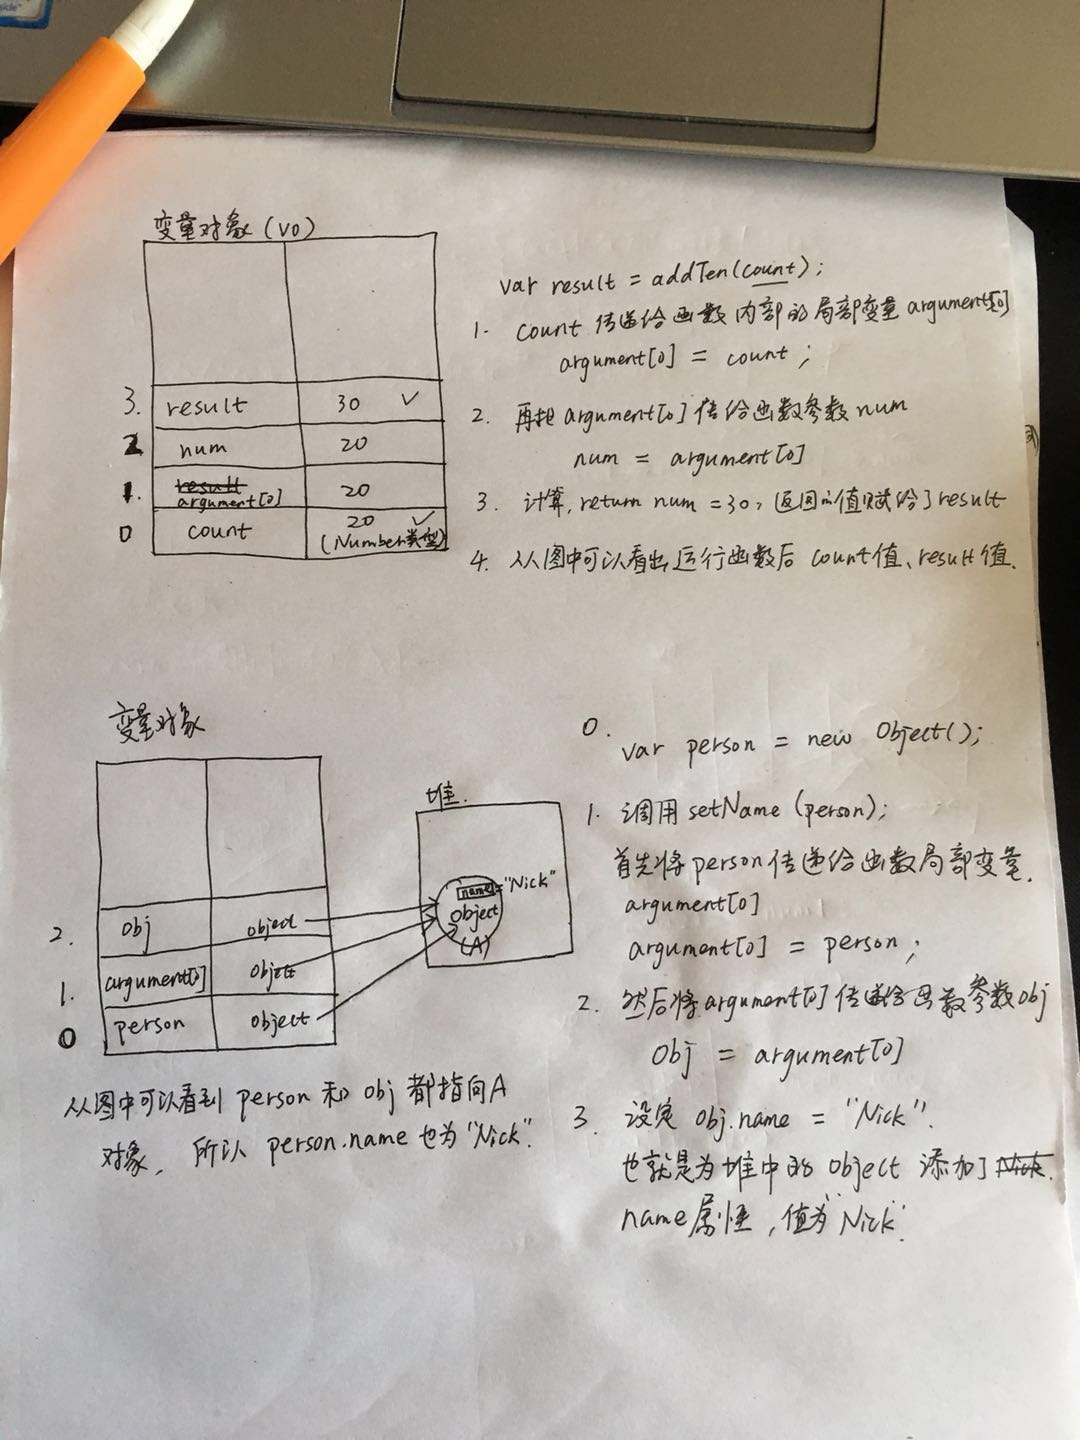 变量对象(VO)
3. result 30 ✓
2 num 20
1. result argument[0] 20
0 count 20 ✓
(Number类型)
var result = addTen(count);
1. count 传递给函数内部的局部变量 argument[0]
argument[0] = count;
2. 再把 argument[0] 传给函数参数 num
num = argument[0]
3. 计算, return num = 30, 返回的值赋给了 result
4. 从图中可以看出运行函数后 count值、result值.
变量对象
2. obj object
1. argument[0] object
0 person object
堆.
name="Nick"
object
(A)
从图中可以看到 person 和 obj 都指向A
对象, 所以 person.name 也为"Nick".
0. var person = new Object();
1. 调用 setName (person);
首先将 person 传递给函数局部变量.
argument[0]
argument[0] = person;
2. 然后将 argument[0] 传递给函数参数 obj
Obj = argument[0]
3. 设定 obj.name = "Nick".
也就是为堆中的 object 添加了 Nick.
name属性, 值为"Nick".